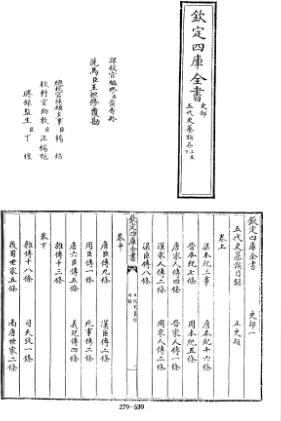 欽定四庫全書
史部
五代史纂誤卷上至下
詳校官編修臣黃壽齡
洗馬臣王坦修覆勘
總校官候補主事臣楊炤
校對官助教臣汪錫魁
謄錄監生臣丁煌
欽定四庫全書
史部一
五代史纂誤目錄
正史類
卷上
梁本紀三事
唐本紀十六條
晉本紀七條
周本紀五條
唐家人傳四條
晉家人傳一條
漢家人傳二條
周家人傳二條
梁臣傳八條
欽定四庫全書
卷中
唐臣傳九條
漢臣傳二條
周臣傳一條
死事傳二條
唐六臣傳五條
義兒傳四條
雜傳十三條
卷下
雜傳十八條
司天考一條
後蜀世家五條
南唐世家二條
279-539